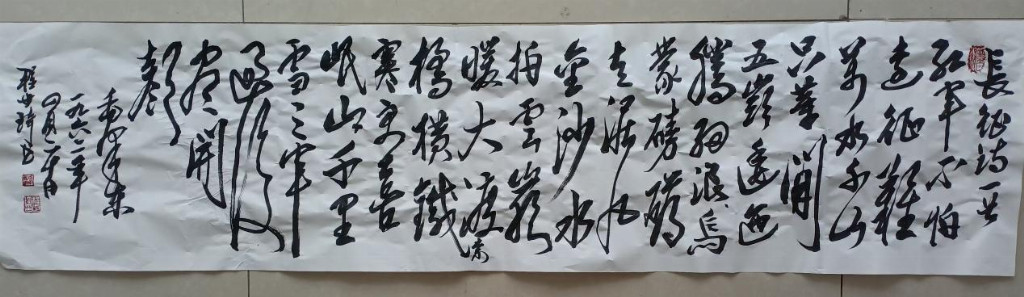 長征詩一首
红軍不怕
遠征難
萬水千山
只等閒
五嶺逶迤
騰细浪烏
蒙磅礴
走泥丸
金沙水
拍雲崖
暖大渡
橋横鐵索
寒更喜
岷山千里
雪三軍
過後
尽開
颜
毛澤東
一九六二年
四月二十日